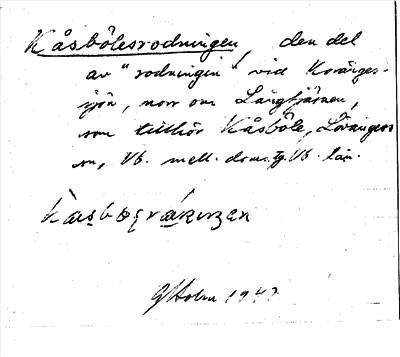 Kåsbölesrodningen, den del
av "rodningen" vid Koränges-
sjön, norr om Långtjärnen,
som tillhör Kåsböle, Lövångers
sn, Vb. mell. doms. tg. Vb. län.
G Holm 1947